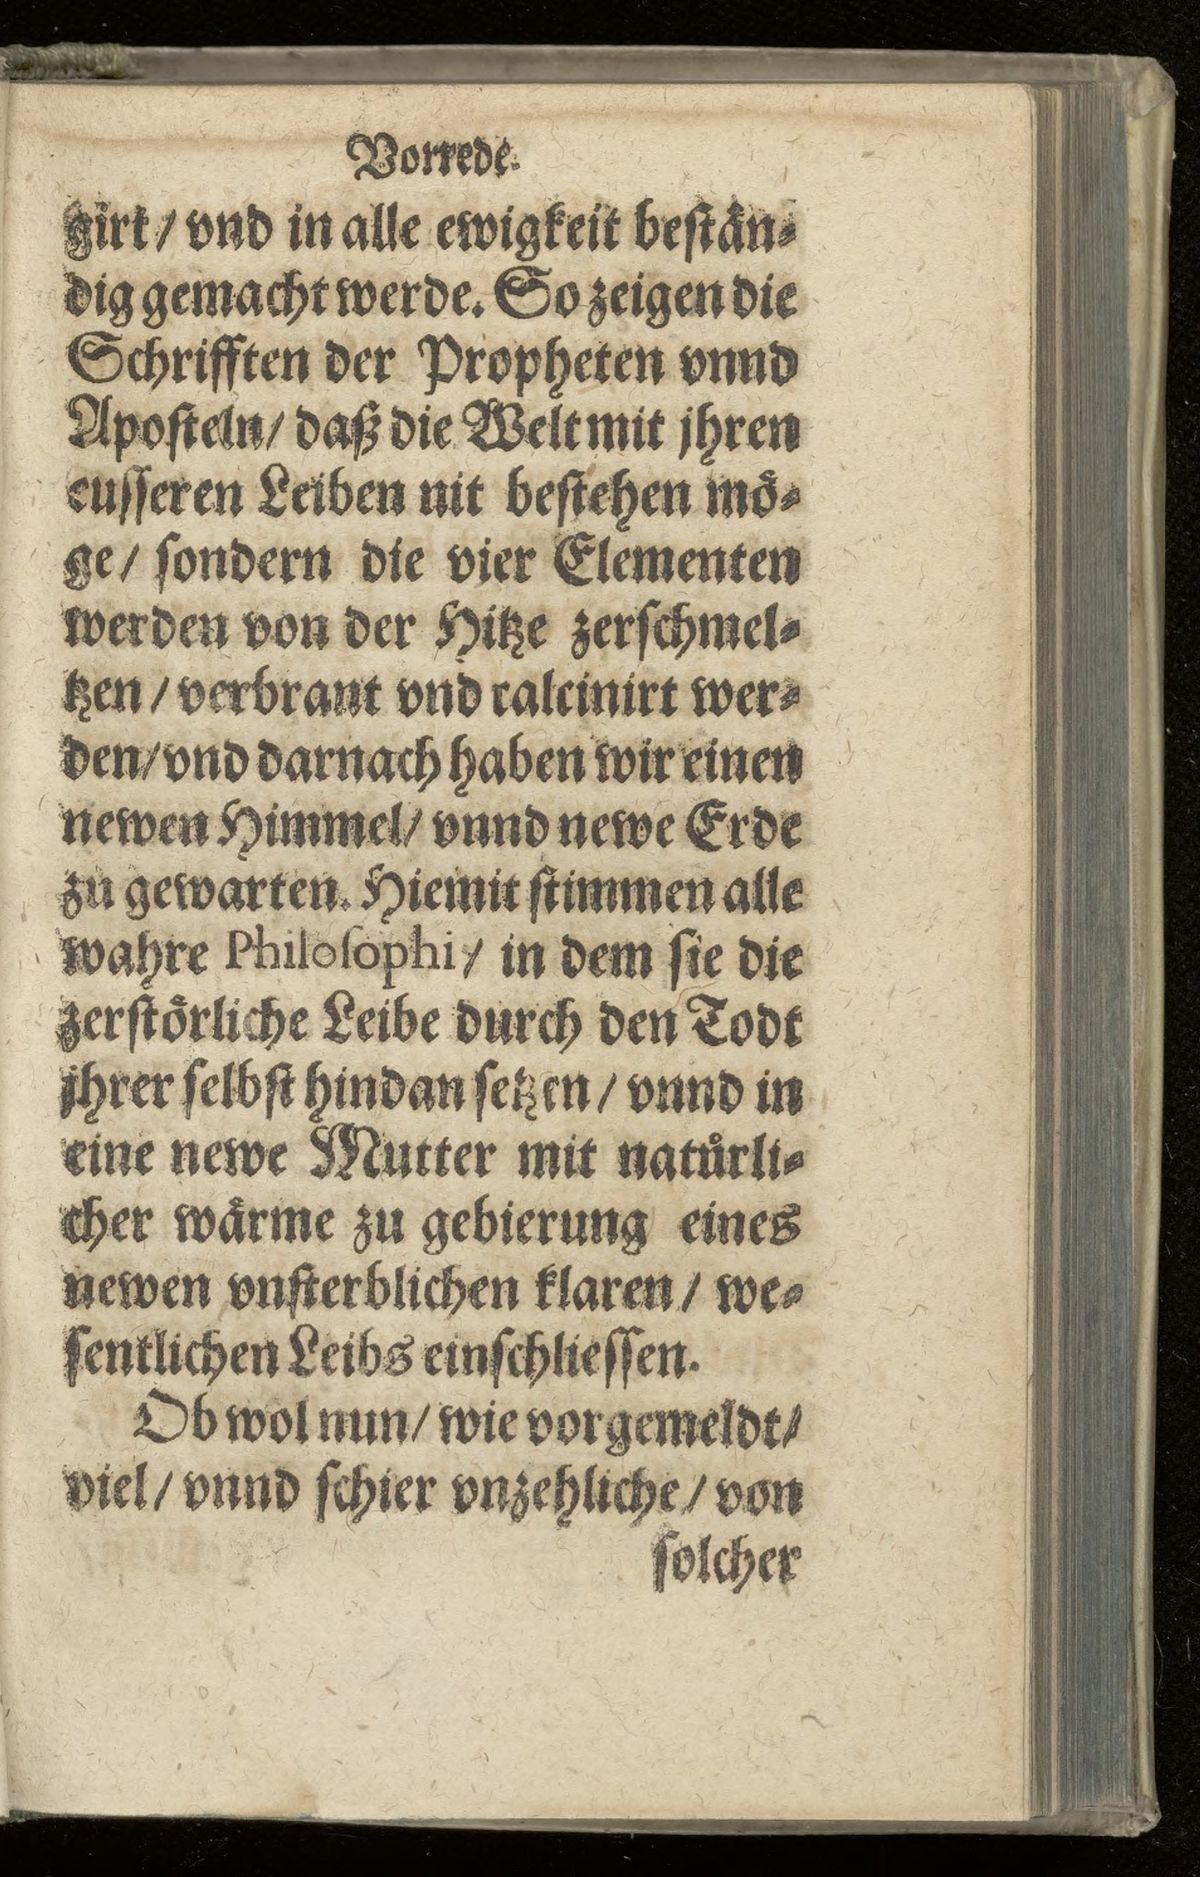 Vorrede.
girt / vnd in alle ewigkeit bestän⸗
dig gemacht werde. So zeigen die
Schrifften der Propheten vnnd
Aposteln / daß die Welt mit jhren
eusseren Leiben nit bestehen mö⸗
ge / sondern die vier Elementen
werden von der Hitze zerschmel⸗
tzen / verbrant vnd calcinirt wer⸗
den / vnd darnach haben wir einen
newen Himmel / vnnd newe Erde
zu gewarten. Hiemit stimmen alle
wahre Philosophi / in dem sie die
zerstörliche Leibe durch den Todt
jhrer selbst hindan setzen / vnnd in
eine newe Mutter mit natürli⸗
cher wärme zu gebierung eines
newen vnsterblichen klaren / we⸗
sentlichen Leibs einschliessen.
Ob wol nun / wie vorgemeldt /
viel / vnnd schier vnzehliche / von
solcher